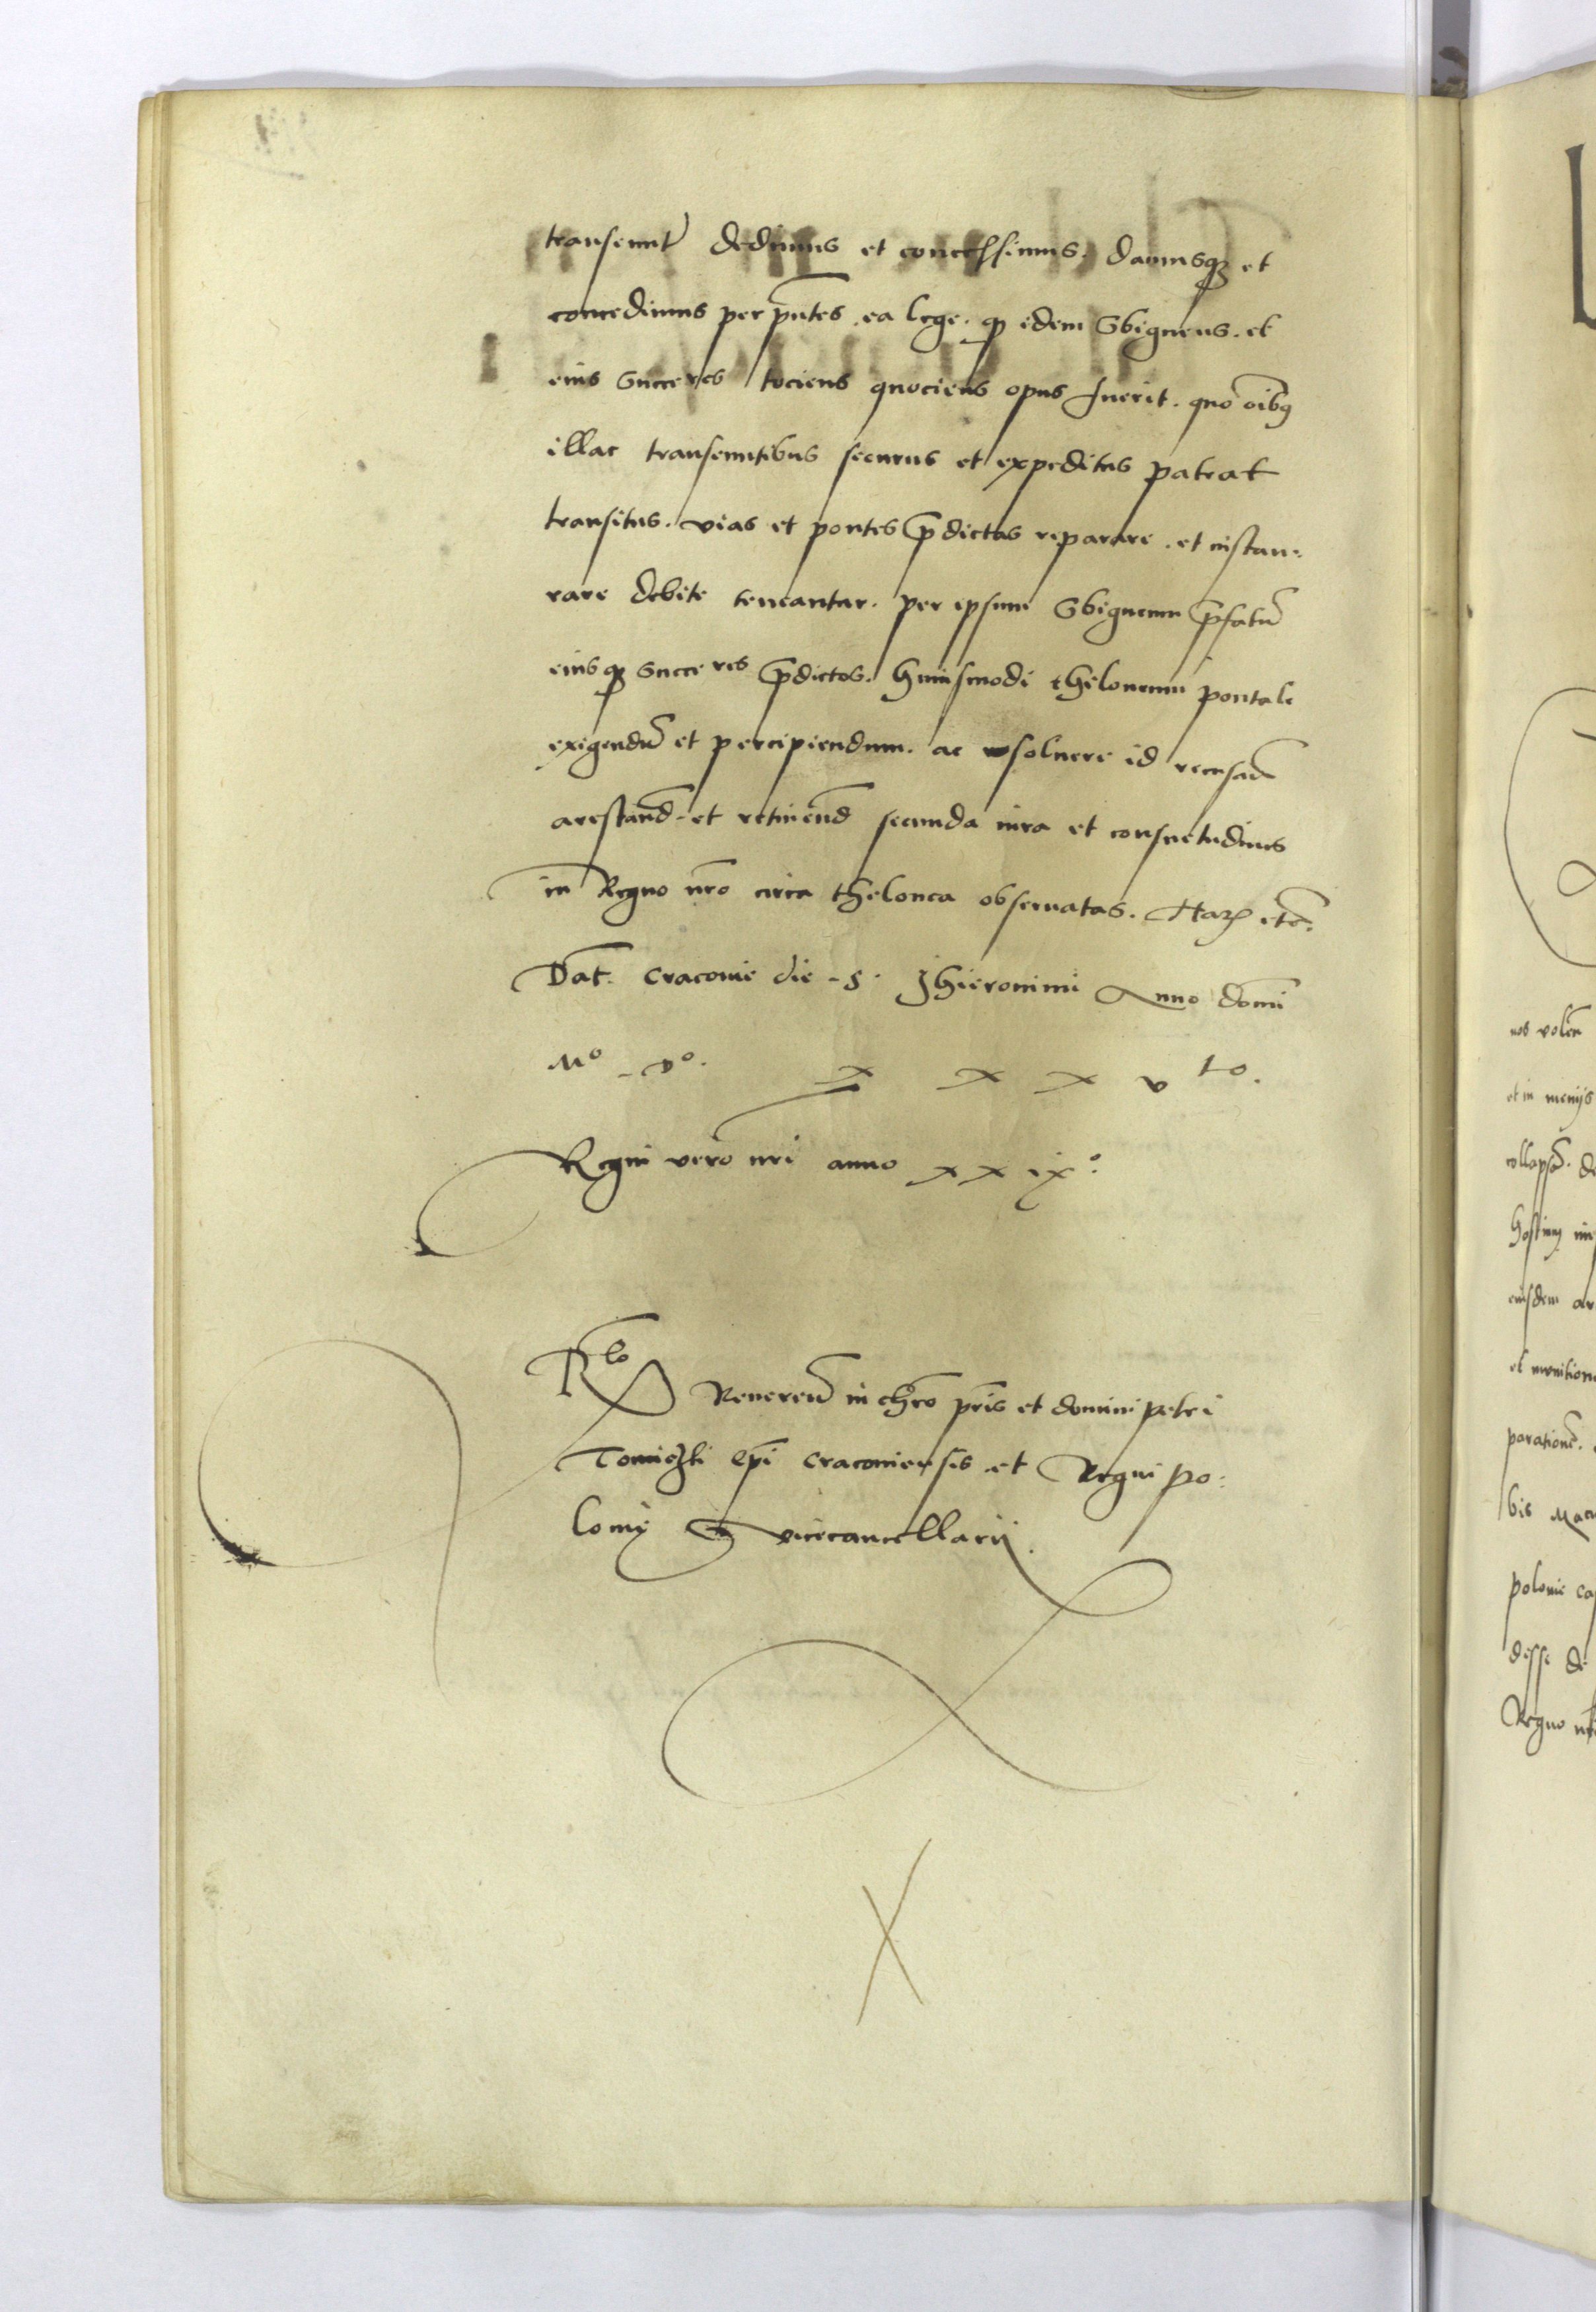 transeunt dedimus et concessimus. damusq et
concedimus per pñtes. ea lege. q idem Sbigneus. et
eius Succeres tociens quociens opus fuerit. quo oibq
illac transeuntibus securus et expeditus pateat
transitus. vias et pontes p̄dictas reparare. et instau:
rare debite teneantur. per ipsum Sbigneum p̄fatu͂
eiusq Succeres p̄dictos. huiusmodi theloneum pontale
exigendu͂ et percipiendum. ac soluere id recusan͂
arestand͂. et retinend͂ secundu iura et consuetudines
in Regno nr̃o circa thelonea obseruatas. Harꝫ etc͂.
Dat͂. Cracouie die .S. Jhieronimi Anno domi͂
Mº. Dº. x x x v to.
Regni vero nri͂ anno x x ixº.
Rlo
Reueren͂ in chr̃o pr̃is et domini petri
Tomiczki epi͂ Cracouiensis et Regni po:
lonię vicecancellarij.
nos volen͂
et in
collapsa͂. de
hostium
eiusdem ar
et munition
paratione͂.
bis
polonie ca
desse de
Regno